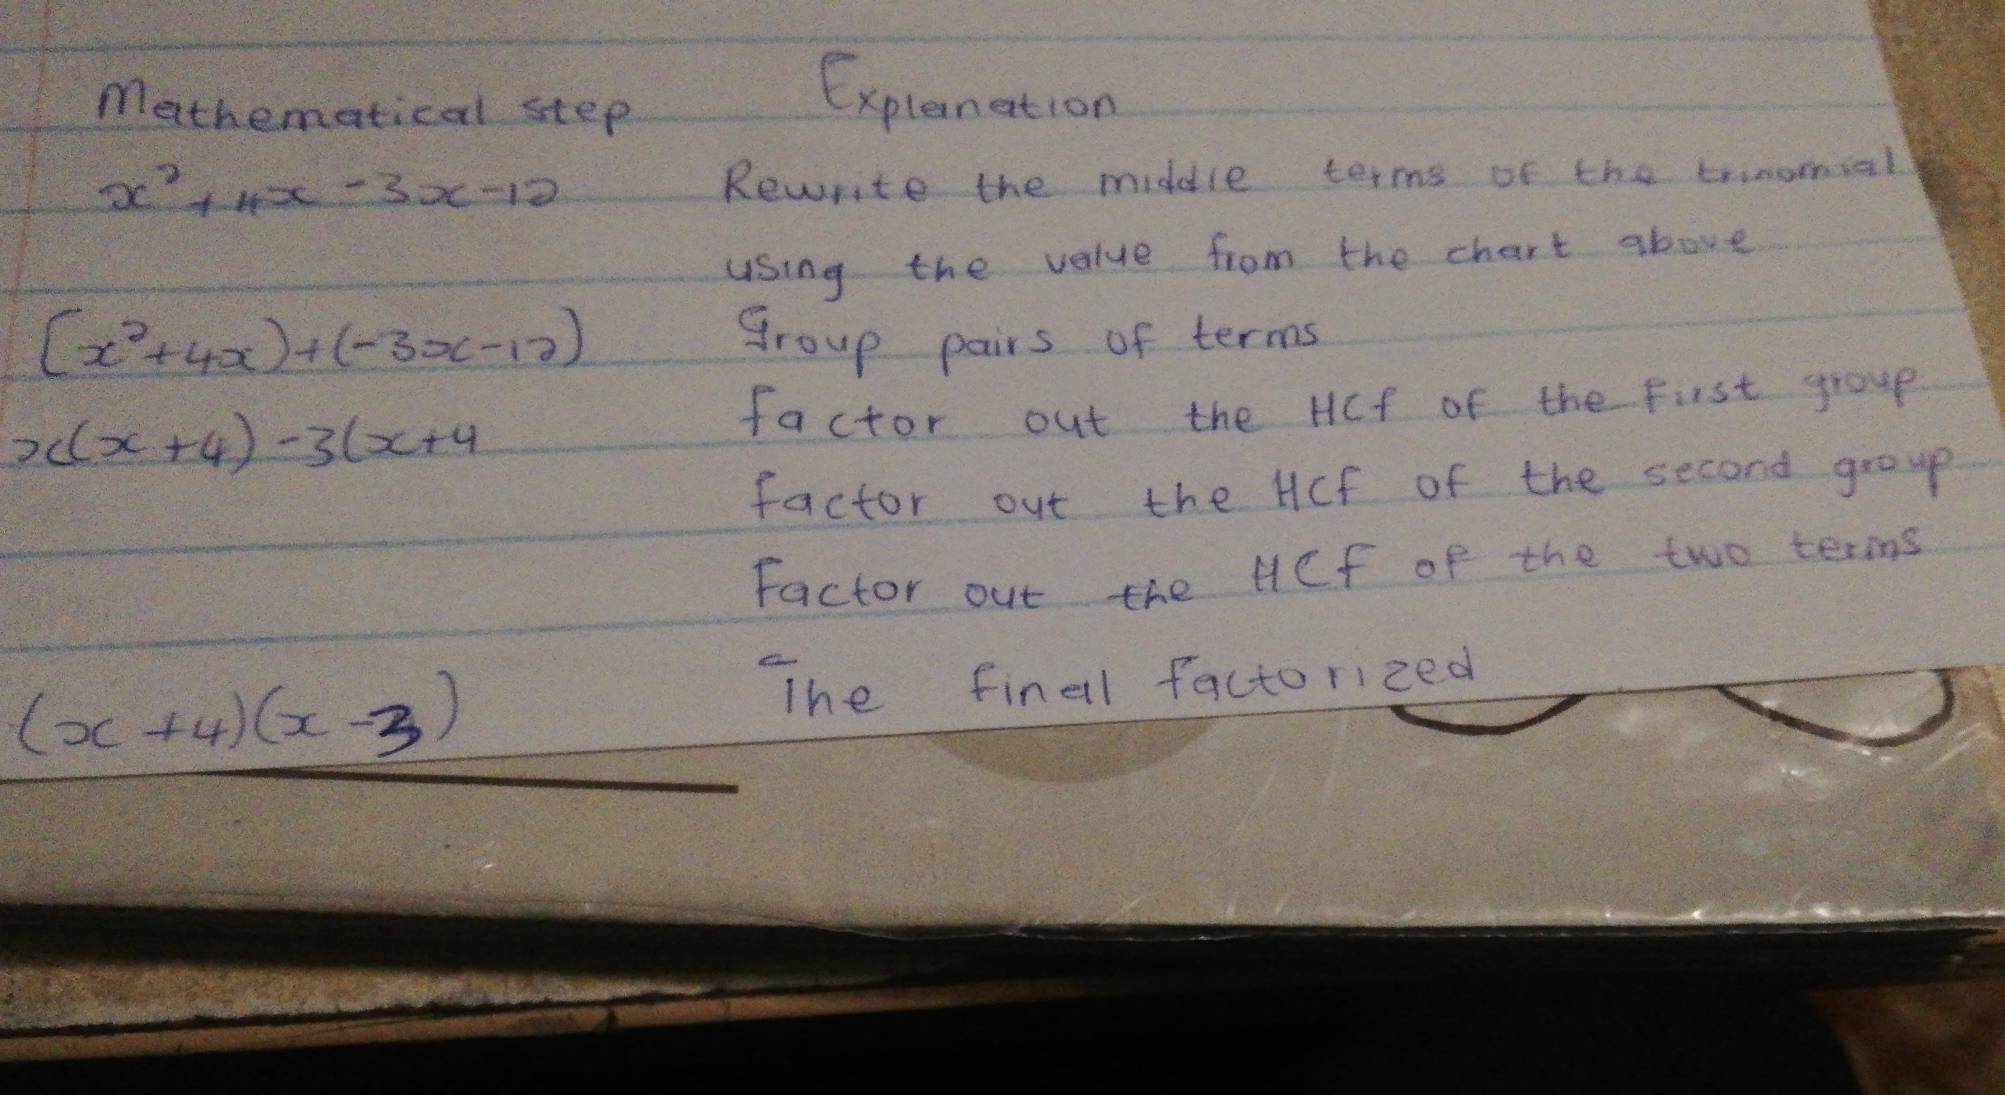 Mathematical step Explanation
x² + 4x - 3x - 12 Rewrite the middle terms of the trinomial
using the value from the chart above
(x² + 4x) + (-3x - 12) Group pairs of terms
x(x + 4) - 3(x + 4 factor out the HCf of the first group
factor out the HCf of the second group
Factor out the HCf of the two terms
(x + 4)(x - 3) The final factorized